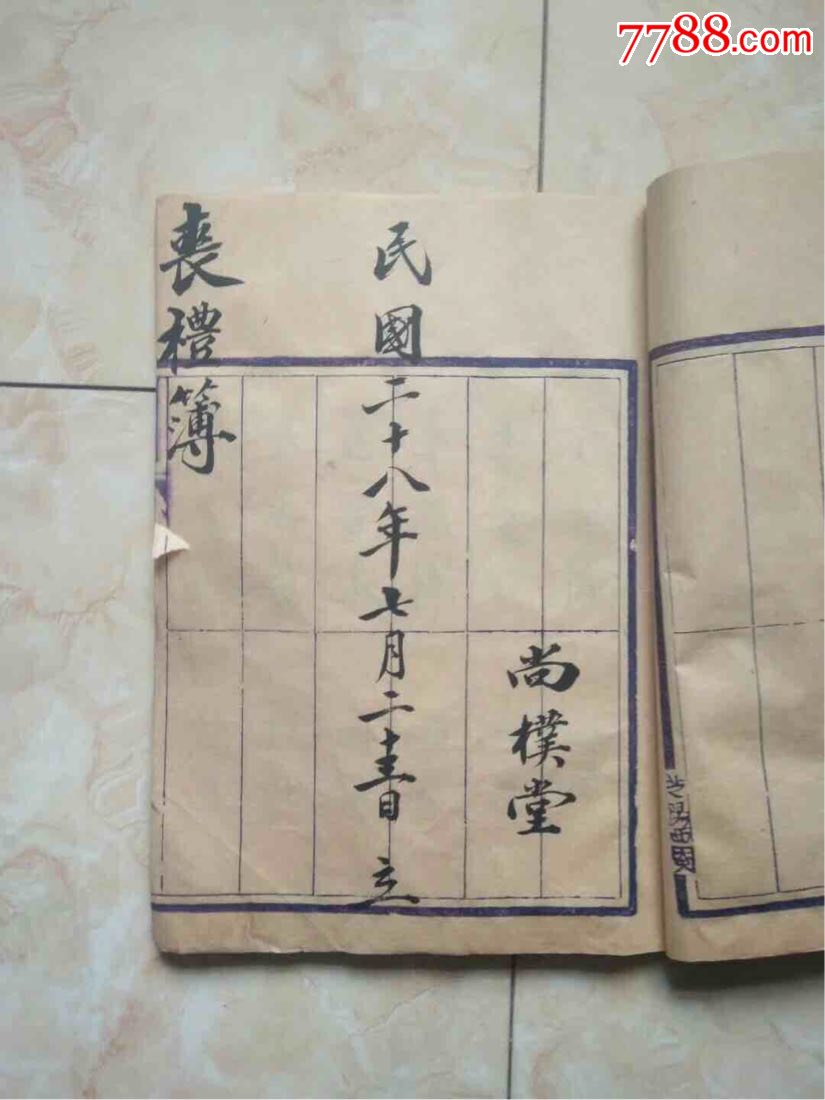 尚樸堂
民國二十八年七月二十日立
喪禮簿
7788.com